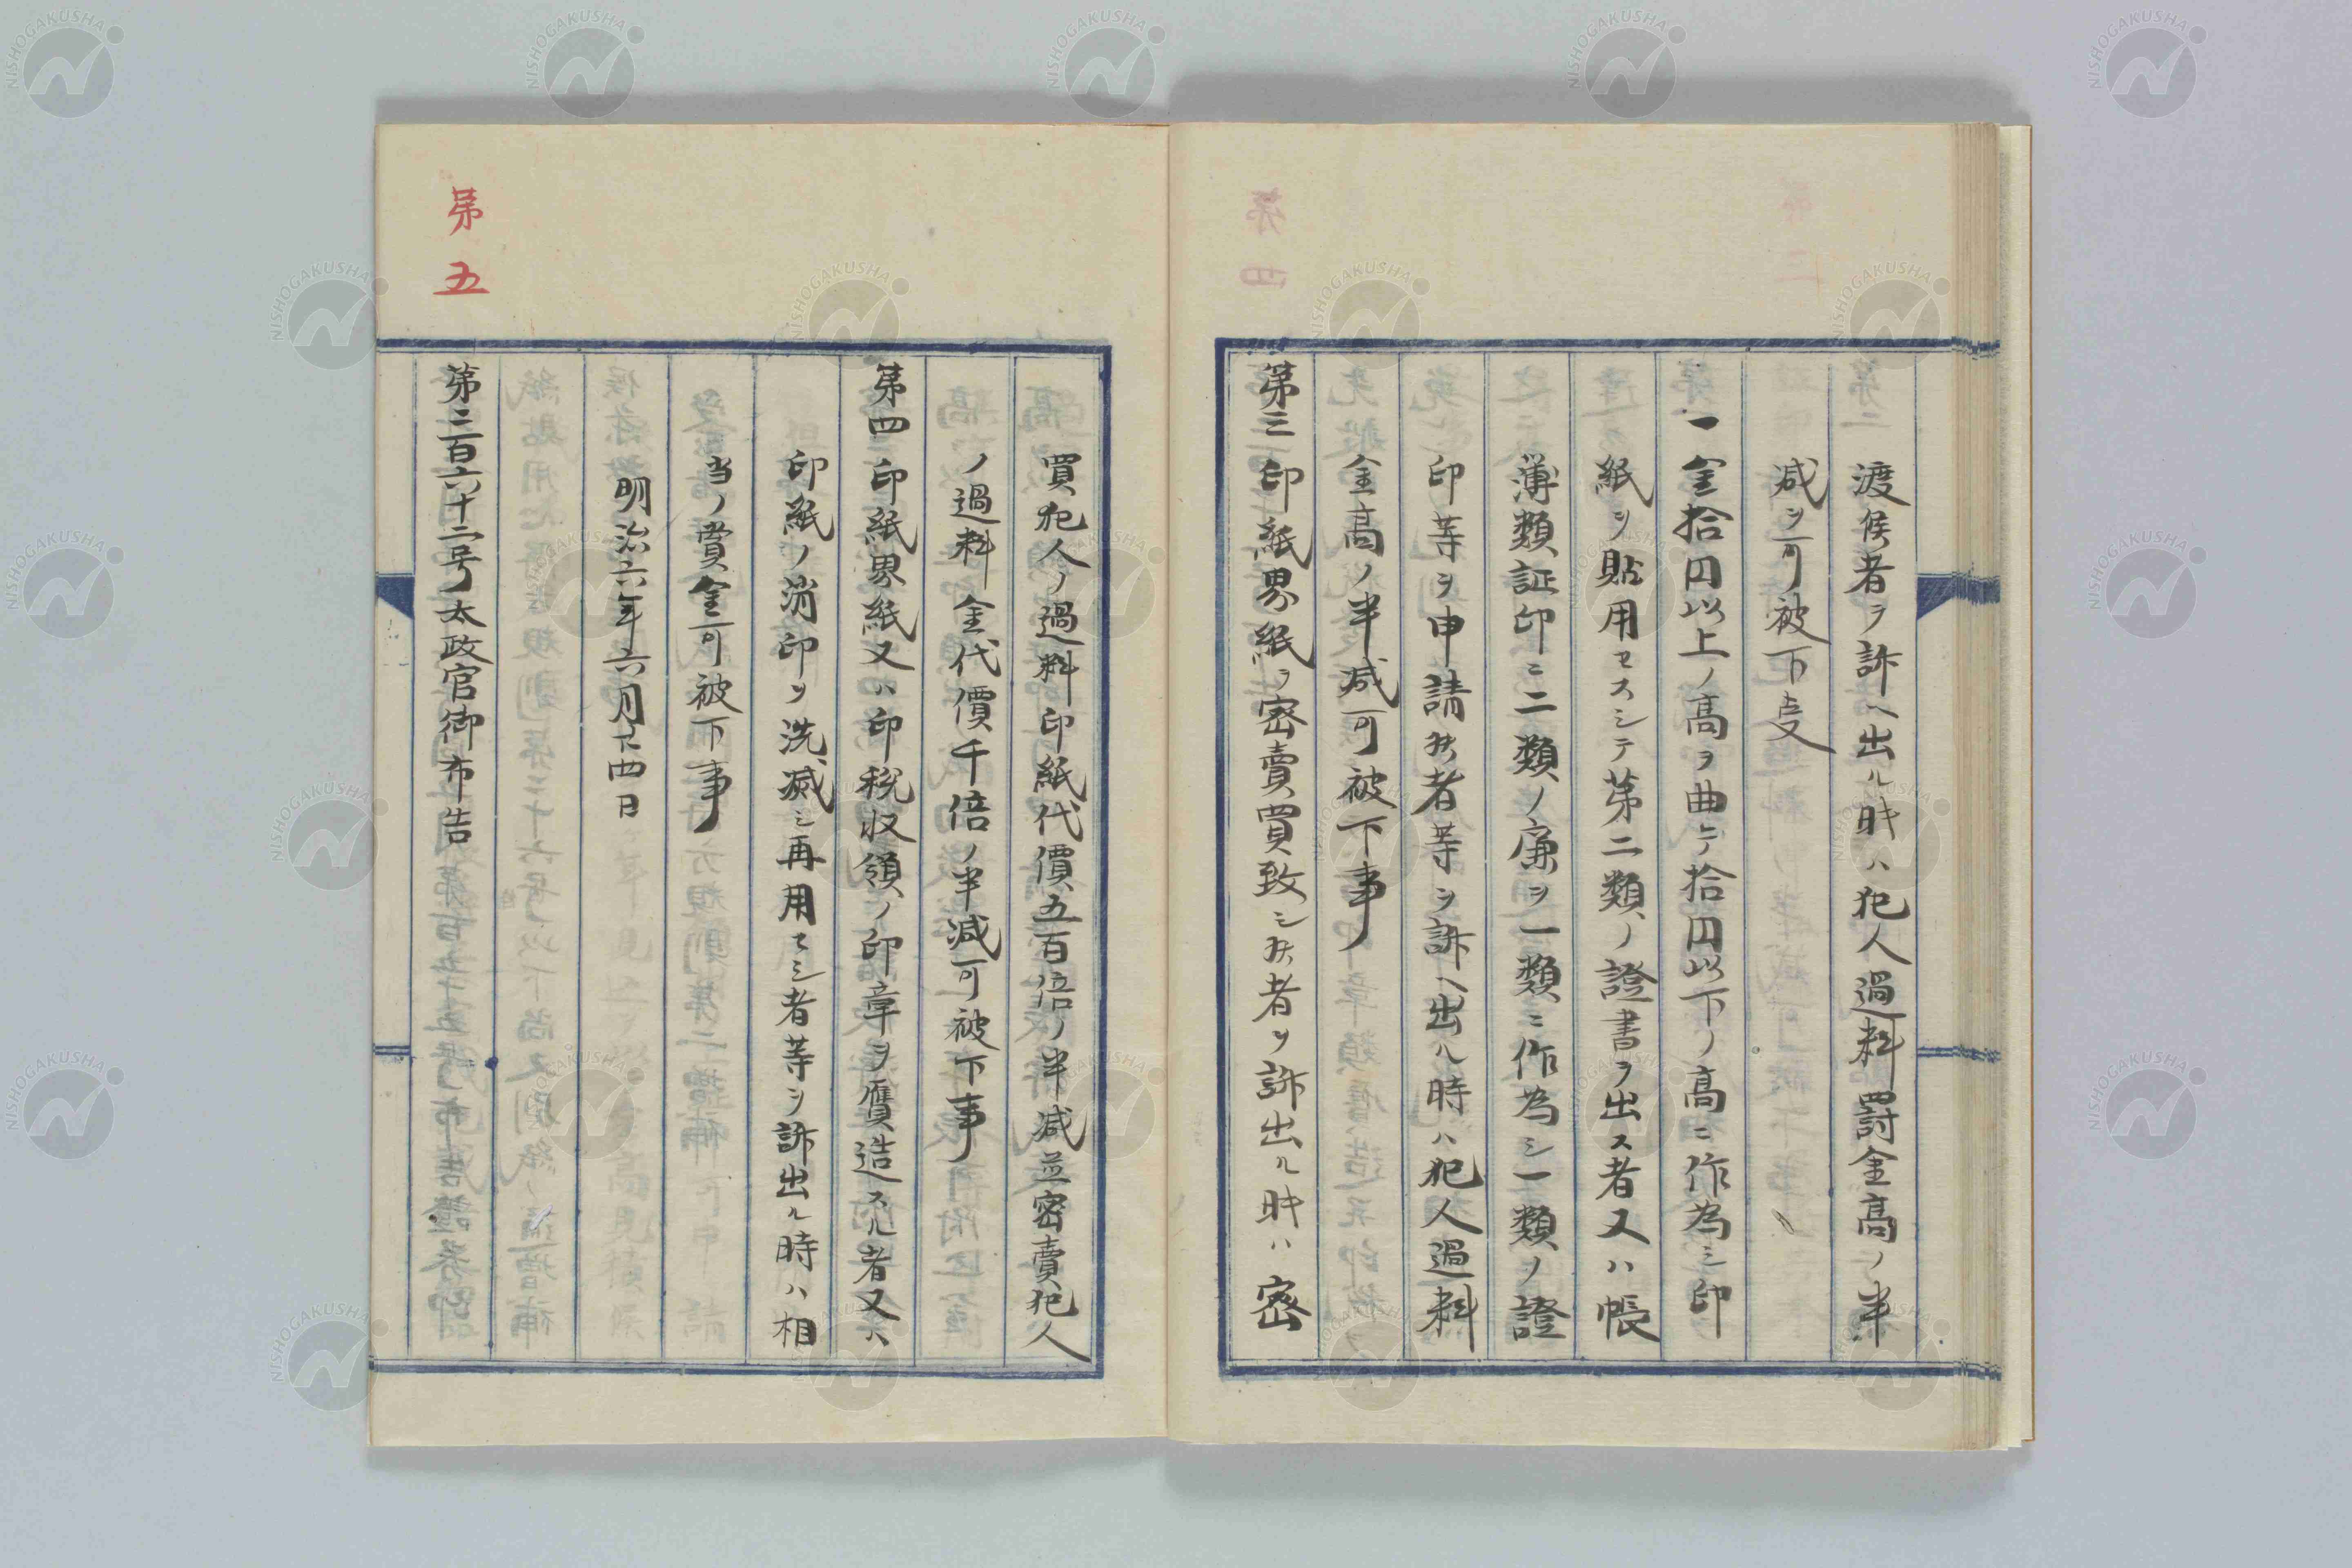 渡候者ヲ訴ヘ出ル時ハ犯人過料罰金高ノ半
減ヲ可被下事
一金拾円以上ノ高ヲ曲テ拾円以下ノ高ニ作為シ印
紙ヲ貼用セスシテ第二類ノ證書ヲ出ス者又ハ帳
薄類証印ニ二類ノ廉ヲ一類ニ作為シ一類ノ證
印等ヲ申請候者等ヲ訴ヘ出ル時ハ犯人過料
金高ノ半減可被下事
第三 印紙界紙ヲ密賣買致シ候者ヲ訴出ル時ハ密
買犯人ノ過料印紙代價五百倍ノ半減並密賣犯人
ノ過料金代價千倍ノ半減可被下事
第四 印紙界紙又ハ印税収領ノ印章ヲ贋造スル者又ハ
印紙ノ消印ヲ洗滅シ再用セシ者等ヲ訴出ル時ハ相
当ノ賞金可被下事
明治六年六月廿四日
第五
第二百六十二号太政官御布告